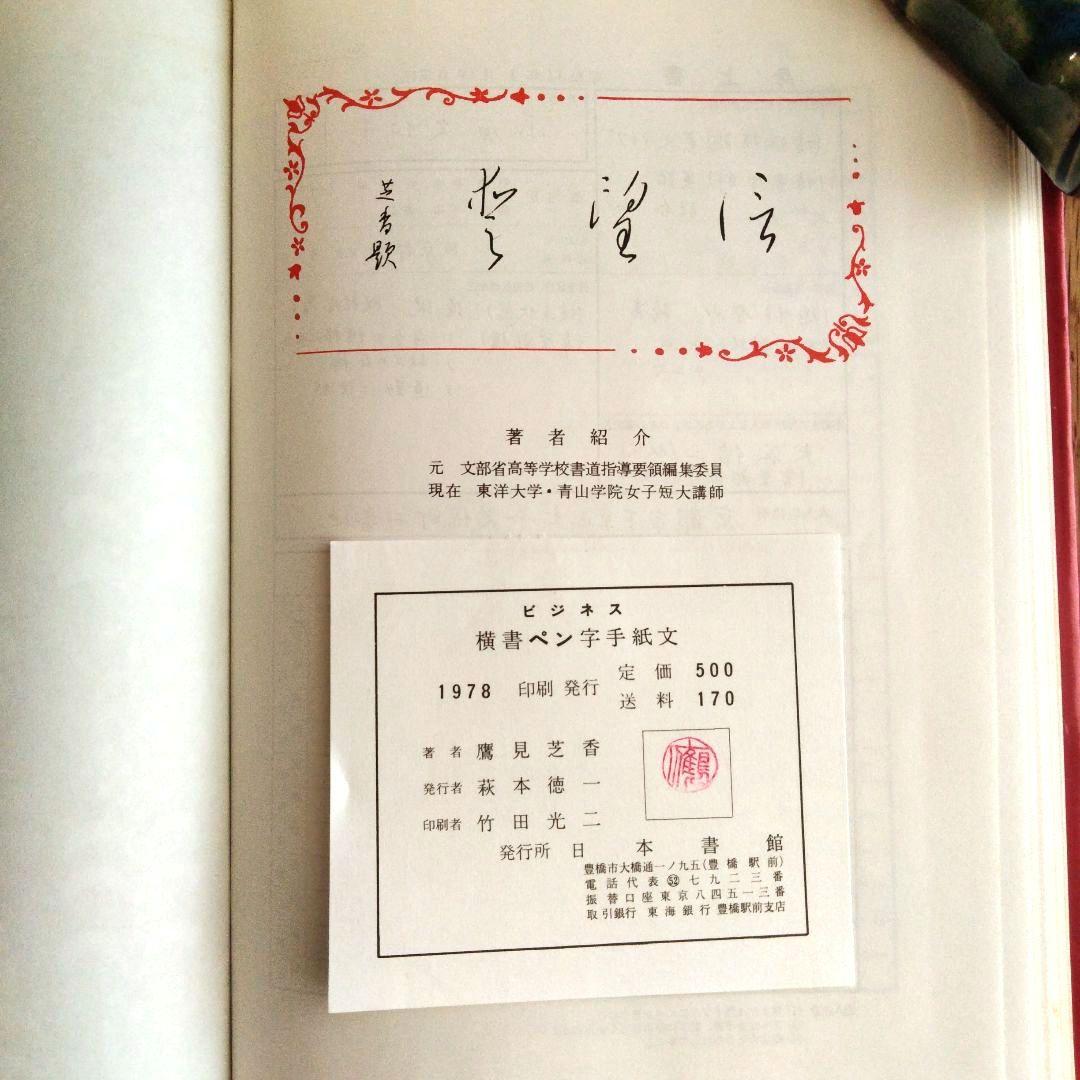 信望愛
芝香題
著者紹介
元 文部省高等学校書道指導要領編集委員
現在 東洋大学・青山学院女子短大講師
ビジネス
横書ペン字手紙文
1978 印刷 発行
定価 500
送料 170
著者 鷹見芝香
発行者 萩本徳一
印刷者 竹田光二
発行所 日本書館
豊橋市大橋通一ノ九五(豊橋駅前)
電話代表㊾七九二三番
振替口座東京八四五一三番
取引銀行 東海銀行 豊橋駅前支店